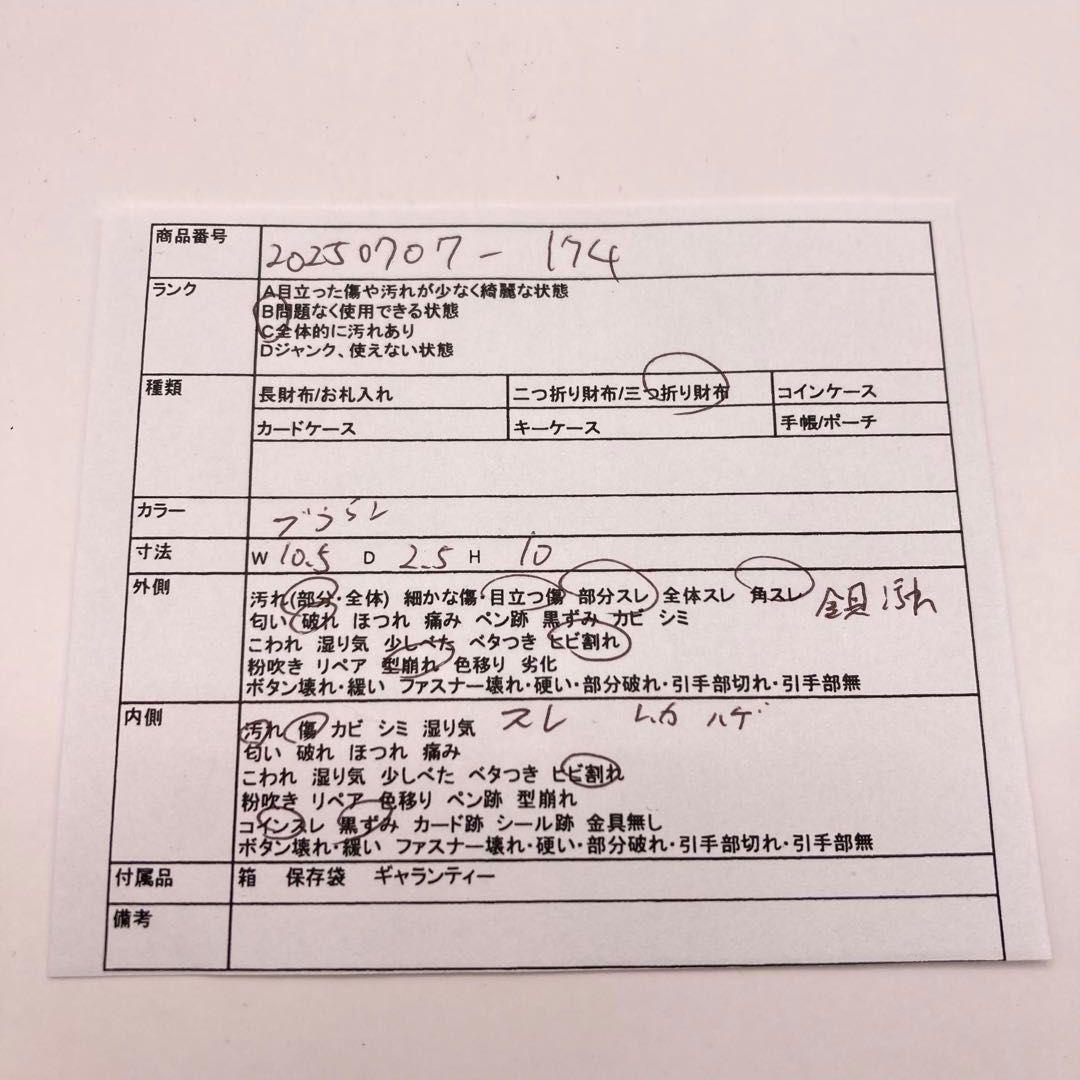 商品番号 20250707-174
ランク A目立った傷や汚れが少なく綺麗な状態
B問題なく使用できる状態
C全体的に汚れあり
Dジャンク、使えない状態
種類 長財布/お札入れ 二つ折り財布/三つ折り財布 コインケース
カードケース キーケース 手帳/ポーチ
カラー
寸法 W 10.5 D 2.5 H 10
外側 汚れ(部分・全体) 細かな傷・目立つ傷 部分スレ 全体スレ 角スレ 金具汚れ
匂い 破れ ほつれ 痛み ペン跡 黒ずみ カビ シミ
こわれ 湿り気 少しべた ベタつき ヒビ割れ
粉吹き リペア 型崩れ 色移り 劣化
ボタン壊れ・緩い ファスナー壊れ・硬い・部分破れ・引手部切れ・引手部無
内側 汚れ 傷 カビ シミ 湿り気 スレ ハゲ
匂い 破れ ほつれ 痛み
こわれ 湿り気 少しべた ベタつき ヒビ割れ
粉吹き リペア 色移り ペン跡 型崩れ
コインスレ 黒ずみ カード跡 シール跡 金具無し
ボタン壊れ・緩い ファスナー壊れ・硬い・部分破れ・引手部切れ・引手部無
付属品 箱 保存袋 ギャランティー
備考